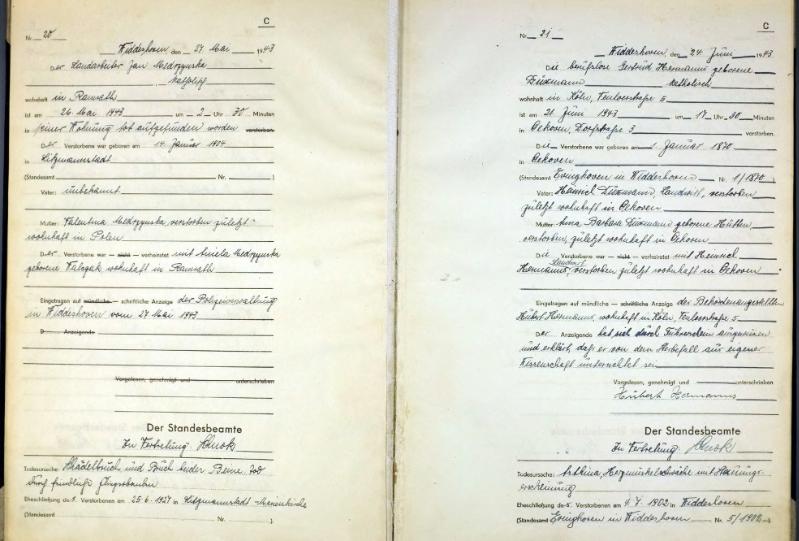 C
Nr. 20
Widdeshoven den 27. Mai 1943
Der Landarbeiter Jan
katholisch
wohnhaft in Ramrath
ist am 26. Mai 1943 um 2 Uhr 30 Minuten
in seiner Wohnung tot aufgefunden worden verstorben.
Der Verstorbene war geboren am 14. Januar 1904
in Litzmannstadt
(Standesamt Nr. )
Vater: unbekannt
Mutter: Valentina verstorben zuletzt
wohnhaft in Polen
Der Verstorbene war — nicht — verheiratet mit
geborene wohnhaft in Ramrath
Eingetragen auf mündliche — schriftliche Anzeige der Polizeiverwaltung
in Widdeshoven vom 27. Mai 1943
D Anzeigende
Vorgelesen, genehmigt und unterschrieben
Der Standesbeamte
In Vertretung
Todesursache: Schädelbruch und Bruch beider Beine. Tod
durch feindliche
Eheschließung des Verstorbenen am 25.6.1927 in Litzmannstadt
(Standesamt Nr. )
C
Nr. 21
Widdeshoven den 24. Juni 1943
Die berufslose Gertrud Hermanns geborene
katholisch
wohnhaft in Köln, Venloerstraße 5
ist am 21. Juni 1943 um 17 Uhr 30 Minuten
in Oekoven, Dorfstraße 3 verstorben.
Die Verstorbene war geboren am 1. Januar 1870
in Oekoven
(Standesamt Evinghoven in Widdeshoven Nr. 1/1870)
Vater: Heinrich Landwirt, verstorben,
zuletzt wohnhaft in Oekoven
Mutter: Anna Barbara geborene Hütten
verstorben, zuletzt wohnhaft in Oekoven
Die Verstorbene war — nicht — verheiratet mit Heinrich
Landwirt
Hermanns, verstorben zuletzt wohnhaft in Oekoven
Eingetragen auf mündliche — schriftliche Anzeige der Behördenangestellten
Hubert Hermanns, wohnhaft in Köln, Venloerstraße 5
Der Anzeigende hat sich durch Führerschein ausgewiesen
und erklärt, daß er von dem Sterbefall aus eigener
Wissenschaft unterrichtet sei
Vorgelesen, genehmigt und unterschrieben
Hubert Hermanns
Der Standesbeamte
In Vertretung
Todesursache: Asthma, Herzmuskelschwäche mit Stauungs-
erscheinung
Eheschließung de Verstorbenen am 4.7.1902 in Widdeshoven
(Standesamt Evinghoven in Widdeshoven Nr. 5/1902)